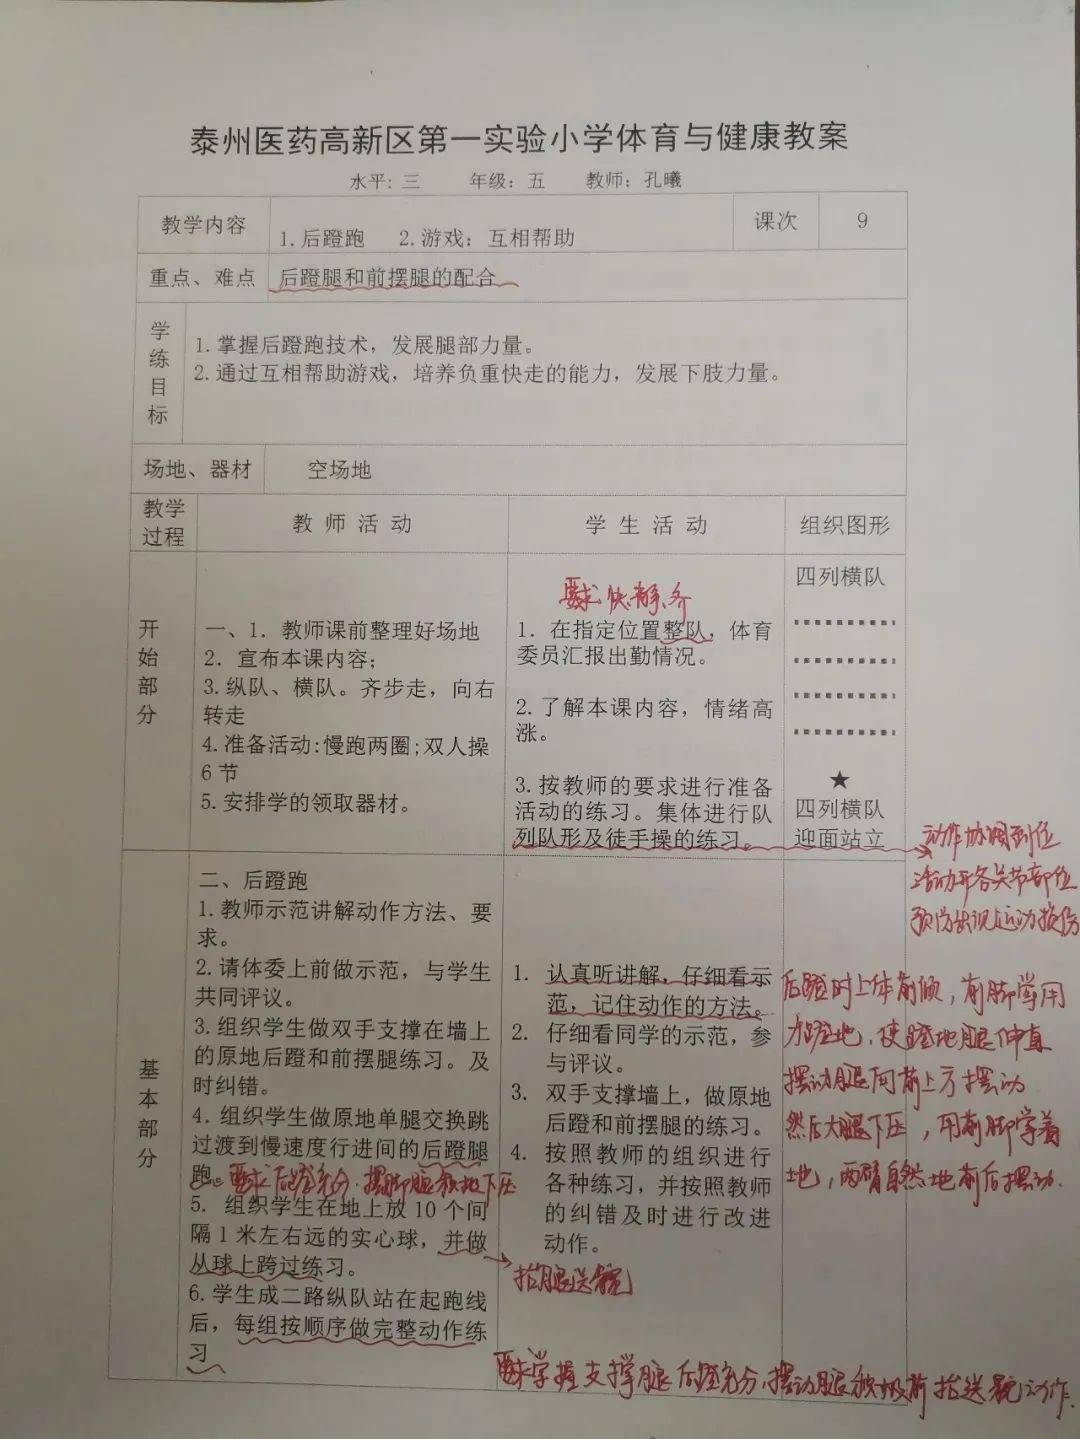 泰州医药高新区第一实验小学体育与健康教案
水平：三 年级：五 教师：孔曦
教学内容
1.后蹬跑 2.游戏：互相帮助
课次
9
重点、难点
后蹬腿和前摆腿的配合
学练目标
1.掌握后蹬跑技术，发展腿部力量。
2.通过互相帮助游戏，培养负重快走的能力，发展下肢力量。
场地、器材
空场地
教学过程
教师活动
学生活动
组织图形
开始部分
一、1. 教师课前整理好场地
2. 宣布本课内容；
3.纵队、横队。齐步走，向右
转走
4.准备活动:慢跑两圈;双人操
6节
5.安排学的领取器材。
要求快、静、齐
1. 在指定位置整队，体育
委员汇报出勤情况。
2.了解本课内容，情绪高
涨。
3.按教师的要求进行准备
活动的练习。集体进行队
列队形及徒手操的练习。
四列横队
★
四列横队
迎面站立
动作协调到位
活动开各关节部位
预防出现运动损伤
基本部分
二、后蹬跑
1.教师示范讲解动作方法、要
求。
2.请体委上前做示范，与学生
共同评议。
3.组织学生做双手支撑在墙上
的原地后蹬和前摆腿练习。及
时纠错。
4.组织学生做原地单腿交换跳
过渡到慢速度行进间的后蹬腿
跑。要求后蹬充分，摆腿积极下压
5. 组织学生在地上放10个间
隔1米左右远的实心球，并做
从球上跨过练习。
6.学生成二路纵队站在起跑线
后，每组按顺序做完整动作练
习
1. 认真听讲解，仔细看示
范，记住动作的方法。
2. 仔细看同学的示范，参
与评议。
3. 双手支撑墙上，做原地
后蹬和前摆腿的练习。
4. 按照教师的组织进行
各种练习，并按照教师
的纠错及时进行改进
动作。
抬腿送髋
后蹬时上体前倾，前脚掌用
力蹬地，使蹬地腿伸直
摆动腿向前上方摆动
然后大腿下压，用前脚掌着
地，两臂自然地前后摆动.
要求掌握支撑腿后蹬充分，摆动腿积极前抬送髋动作.